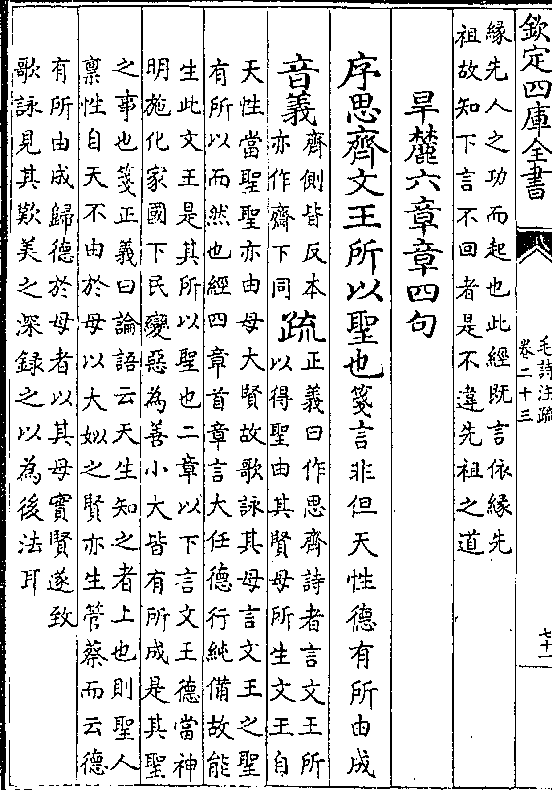 欽定四庫全書
毛詩注疏
卷二十三
七十一
緣先人之功而起也此經既言依緣先
祖故知下言不回者是不違先祖之道
旱麓六章章四句
序思齊文王所以聖也箋言非但天性德有所由成
音義齊側皆反本
亦作齋下同
疏正義曰作思齊詩者言文王所
以得聖由其賢母所生文王自
天性當聖聖亦由母大賢故歌詠其母言文王之聖
有所以而然也經四章首章言大任德行純備故能
生此文王是其所以聖也二章以下言文王德當神
明施化家國下民變惡為善小大皆有所成是其聖
之事也箋正義曰論語云天生知之者上也則聖人
稟性自天不由於母以大姒之賢亦生管蔡而云德
有所由成歸德於母者以其母實賢遂致
歌詠見其歎美之深録之以為後法耳